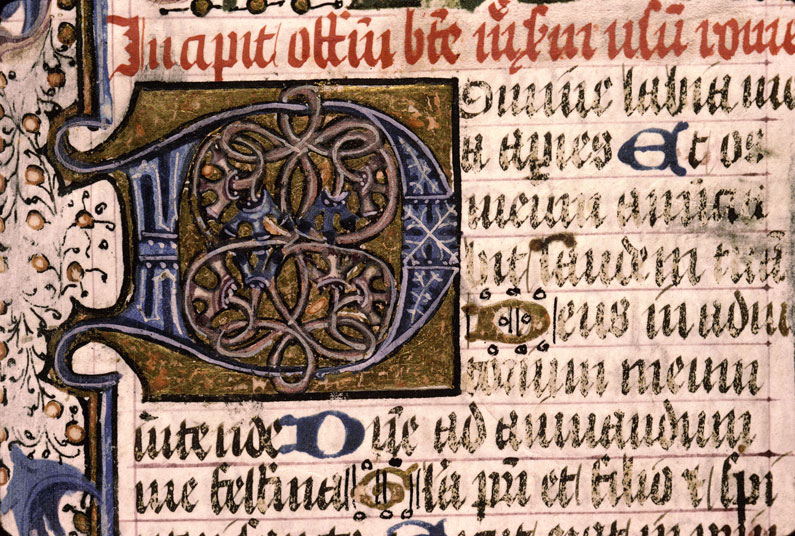 Incipit offiu bte m͂ scdm usu rome
Domine labia me
a apries Et os
meum anūcia
bit laudem tuā
Deus in adiu
torium meum
intende Dne ad adiuuandum
me festina Gla pri et filio z spi